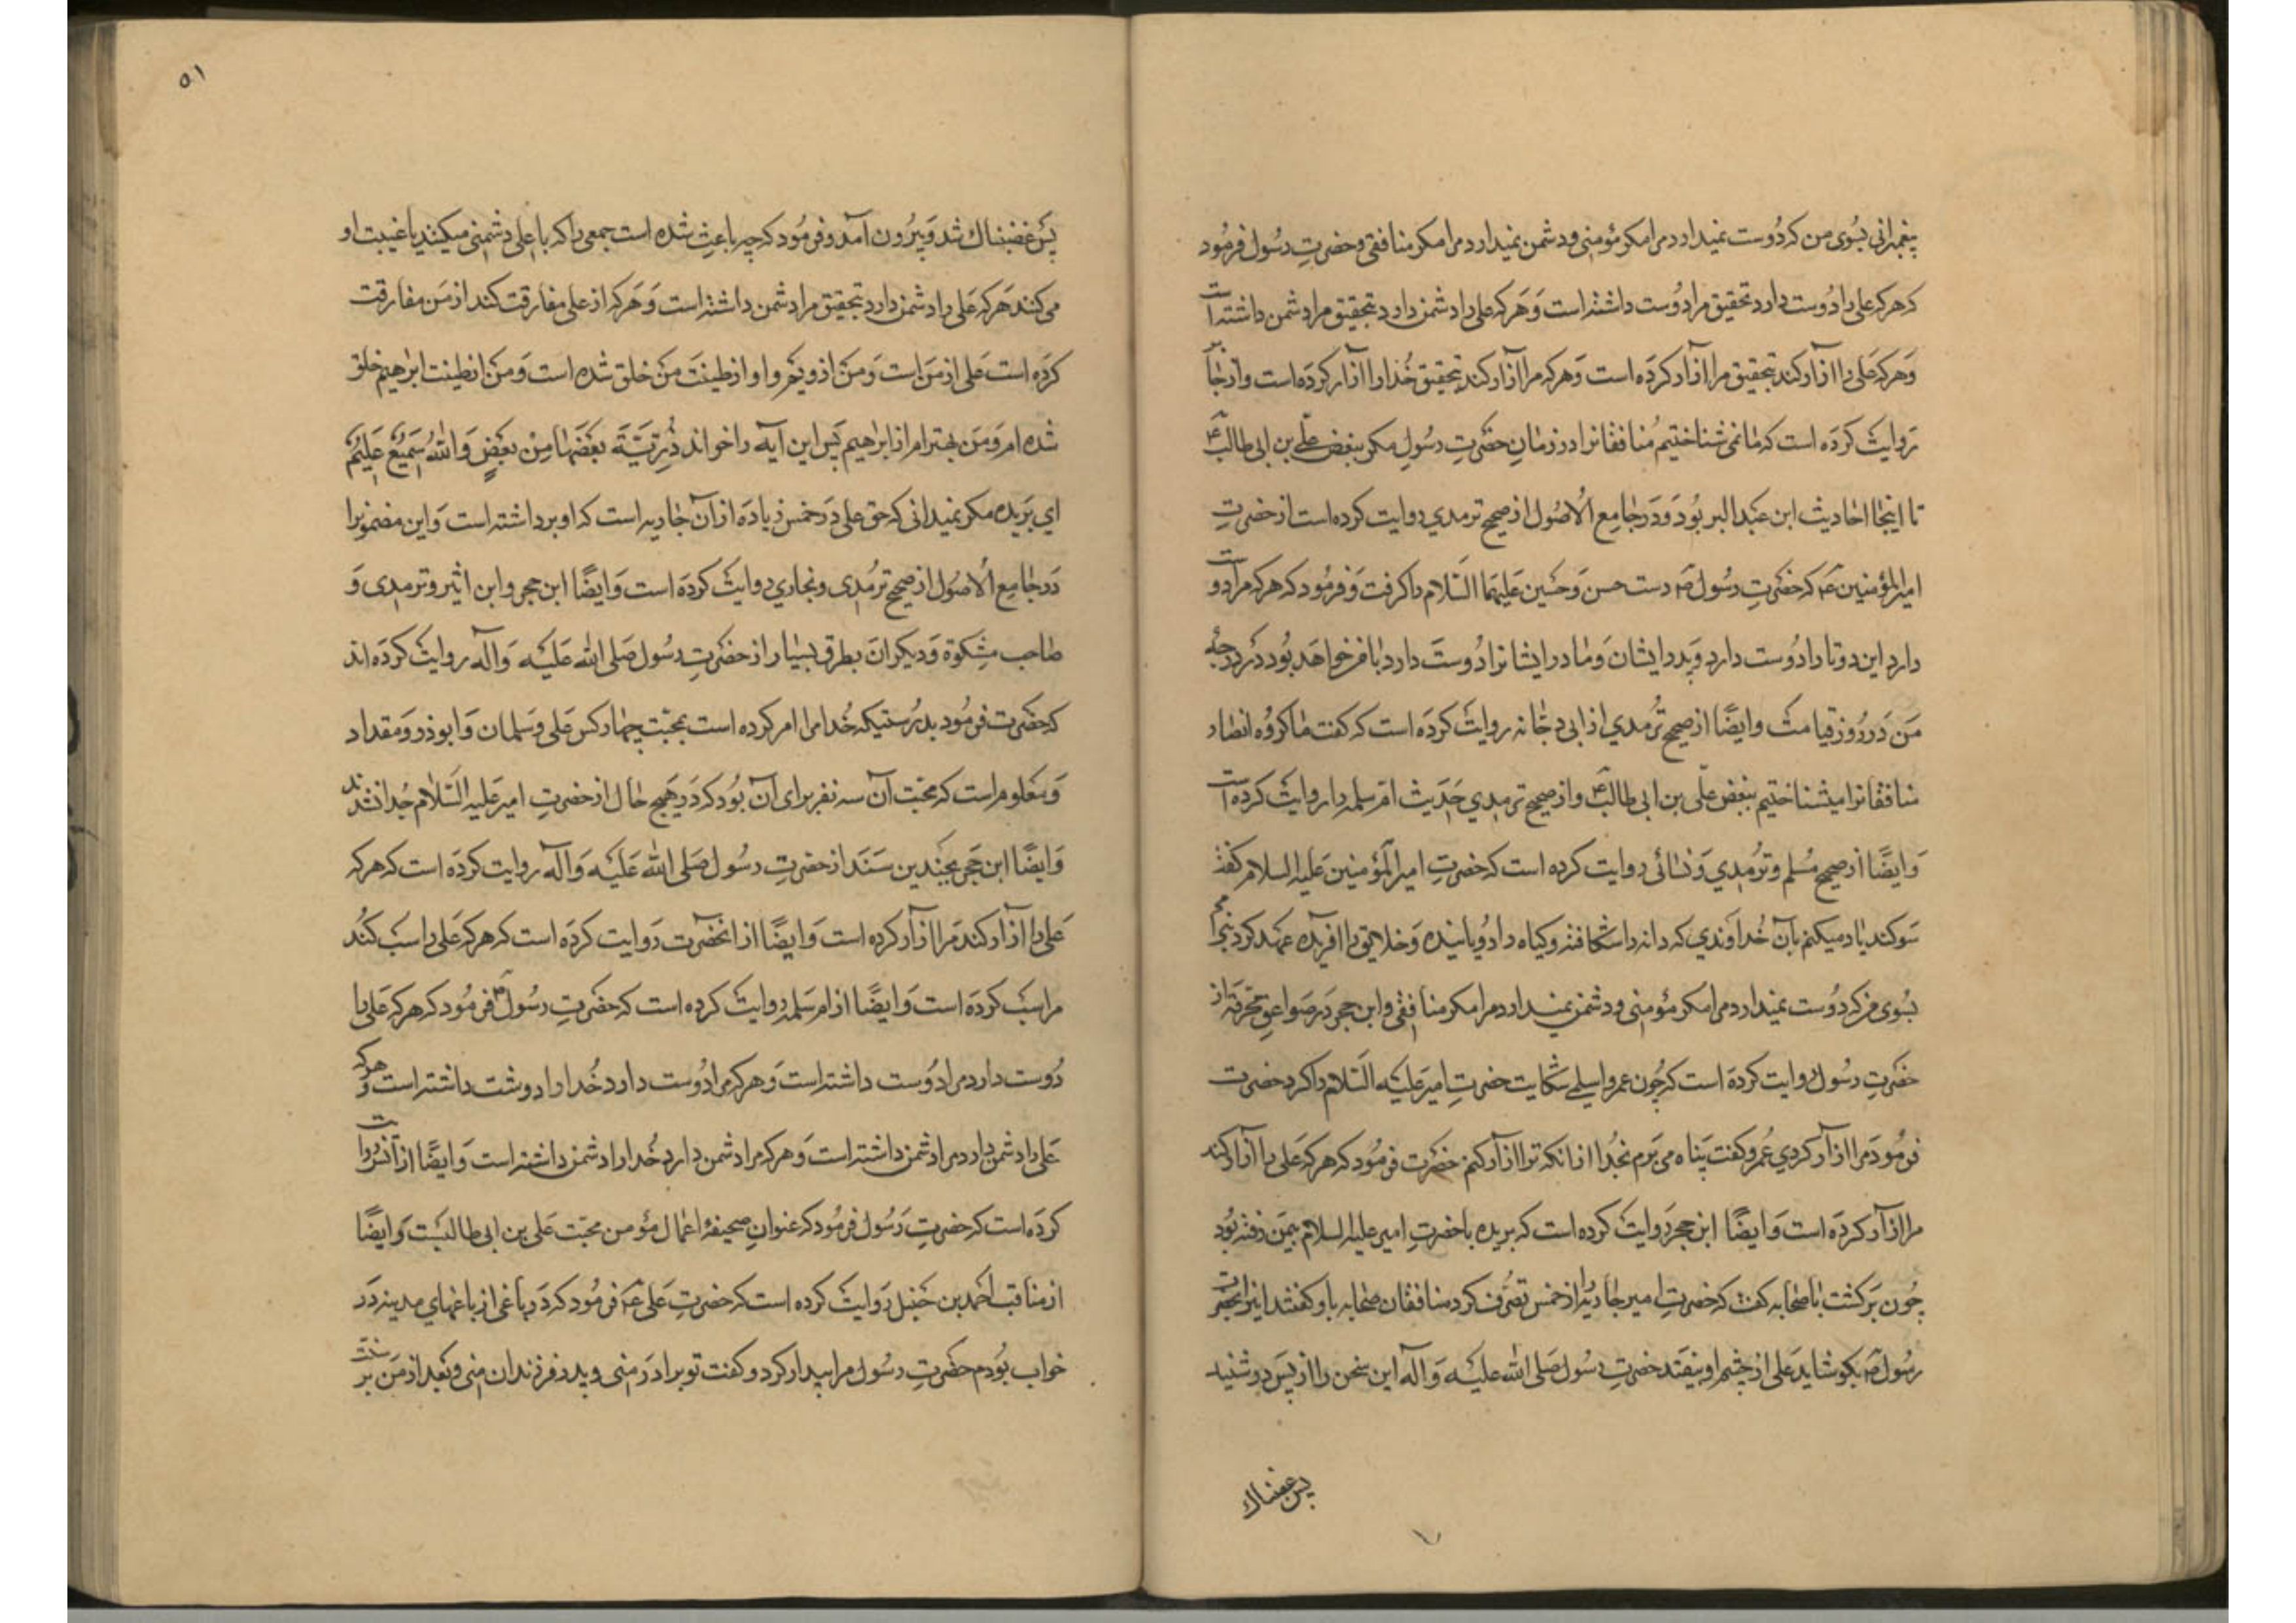 پیغمبر امّی بسوی من که دوست نمیدارد مرا مکر مؤمنی و دشمن نمیدارد مرا مکر منافقی و حضرتِ رسول فرمود
که هرکه علی را دوست دارد تحقیق مرا دوست داشته است وَ هَرکه علی را دشمن دارد بتحقیق مرا دشمن داشته است
وَ هرکه عَلی را ازار کند بتحقیق مرا ازار کرَده است وَ هرکه مرا آزار کند بتحقیق خُدا را ازار کرده است و از جٰابر
رَوایت کرَده است که مٰا نمی شناختیم مُنافقانرا در زمانِ حضَرتِ رسُول مکر ببغض علی بن ابی طالبؑ
تا اینجٰا احٰادیث ابن عَبد البر بُود وَ دَر جٰامع الاُصُول از صحیح ترمدی روایت کرده است از حضرتِ
امیر المؤمنین عؑ که حضَرتِ رسُول صؐ دست حسن وَ حسَین عَلیهمَا السَّلام را کرفت وَ فرمُود که هرکه مرا دوست
دارد این دو تا را دُوست دارد وَ پدر ایشان وَ مٰادر ایشانرا دُوست دارد بٰا من خواهَد بُود دَر درجهٔ
مَن دَر رُوز قیامت وَ ایضًا از صحیح تُرمدی از ابی دجٰانه روایت کرَده است که کفت مٰا کروُه انصٰار
منافقانرا میشناختیم ببغض علی بن ابی طالبؑ و از صحیح ترمدی حَدَیث ام سلمه را روایت کرده است
وَ ایضًا از صحیح مُسلم و تُرمدی وَ نسٰائی روایت کرده است که حضرتِ امیر المؤمنین عَلیه السلام کفت
سَوکند یٰاد میکنم بآن خُداوندی که دانه را شکافته و کیاه را رُویانیده وَ خلایق را افریده عَهد کرد پیغمبر امّی
بسُوی من که دُوست نمیدارد مرا مکر مؤمنی و دشمن نمیدارد مرا مکر منٰافقی و ابن حجر دَر صَواعق محرقه از
حضَرتِ رسُول روایت کرده است که چُون عمرو اسلمی شکایت حضرتِ امیر عَلیه السَّلام را کرد حضرت
فرمُود مَرا ازار کردی عُمرو کفت پَناه می بَرم بخُدا از انکه ترا ازار کنم حضرت فرمُود که هرکه عَلی را ازار کند
مرا ازار کرَده است وَ ایضًا ابن حجر رَوایت کرده است که بریده باحضرتِ امیر علیه السلام بیمَن رفته بُود
چون بَرکشت بٰا صحٰابه کفت که حضرتِ امیر جٰاریهٔ از خمس تصُّرف کرد منافقان صحٰابه باو کفتند این را بحضرت
رسُول صؐ بکو شاید عَلی از چشم او بیفتد حضرتِ رسُول صَلی الله علیه وَ آله این سخن را از پس در شنید
پس غضبناک
۵۱
پس غضبناک شد وَ بیرُون آمد و فرمُود که چه باعث شده است جمعی را که با علی دشمنی میکنند یا غیبت او
می کنند هَرکه عَلی را دشمن دارد بتحقیق مرا دشمن داشته است وَ هَرکه از علی مفارقت کند از مَن مفارقت
کرَده است عَلی از مَن است وَ مَن از ویَم و او از طینَت مَن خلق شده است وَ مَن از طینت ابرهیم خلق
شده ام وَ مَن بهترام از ابراهیم پَس این آیه را خواند ذُرِیَّةً بَعْضُهٰا مِنْ بَعْضٍ وَاللهُ سَمیْعٌ عَلیْمٌ
ای بَریده مکر نمیدانی که حق علی دَر خمس زیٰادَه از آن جٰاریه است که او برداشته است وَ این مضمونرا
دَر جٰامع الاُصُول از صحیح ترمُدی و بخاری روایت کرَده است وَ ایضًا ابن حجر و ابن اثیر و ترمدی وَ
صٰاحب مشِکوة وَ دیکران بطرق بسیٰار از حضَرتِ رسُول صَلی الله عَلَیه وَ آله روایت کردَه اند
که حضَرت فرمُود بدرُستیکه خُدا مرا امر کرده است بمحبّت چهٰار کس عَلی و سَلمان وَ ابوذر وَ مقداد
وَ مَعلوم است که محبّت آن سه نفر برای آن بُود که دَر هَیچ حٰال از حضرتِ امیر عَلیه السَّلام جُدا نشدند
وَ ایضًا ابن حَجر بچَندین سَنَد از حضرتِ رسُول صَلی الله عَلَیه وَ آله روایت کرَده است که هرکه
عَلی را ازار کند مَرا ازار کرده است وَ ایضًا از انحضرت رَوایت کرَده است که هرکه عَلی را سَب کُند
مرا سَب کردَه است وَ ایضًا از ام سَلمه روایت کرده است که حضَرتِ رسُولؐ فرمُود که هرکه عَلی را
دُوست دارد مرا دُوست داشته است وَ هرکه مرا دُوست دارد خُدا را دوست داشته است وَ هرکه
عَلی را دشمن دارد مرا دشمن داشته است وَ هرکه مرا دشمن دارد خُدا را دشمن داشته است وَ ایضًا از انس روایت
کردَه است که حضرتِ رَسُول فرمُود که عنوانِ صحیفهٔ اعمٰال مؤمن محبّت عَلی بن ابی طالبست وَ ایضًا
از مناقب احمد بن حَنبل رَوایت کرده است که حضرتِ عَلی عؑ فرمُود که دَر باغی از باغهای مدینه دَر
خواب بوَدم حضَرتِ رسُول مرا بیدار کرد و کفت تو برادَر منی و پدر فرزندان منی وَ بَعد از مَن بر سنت